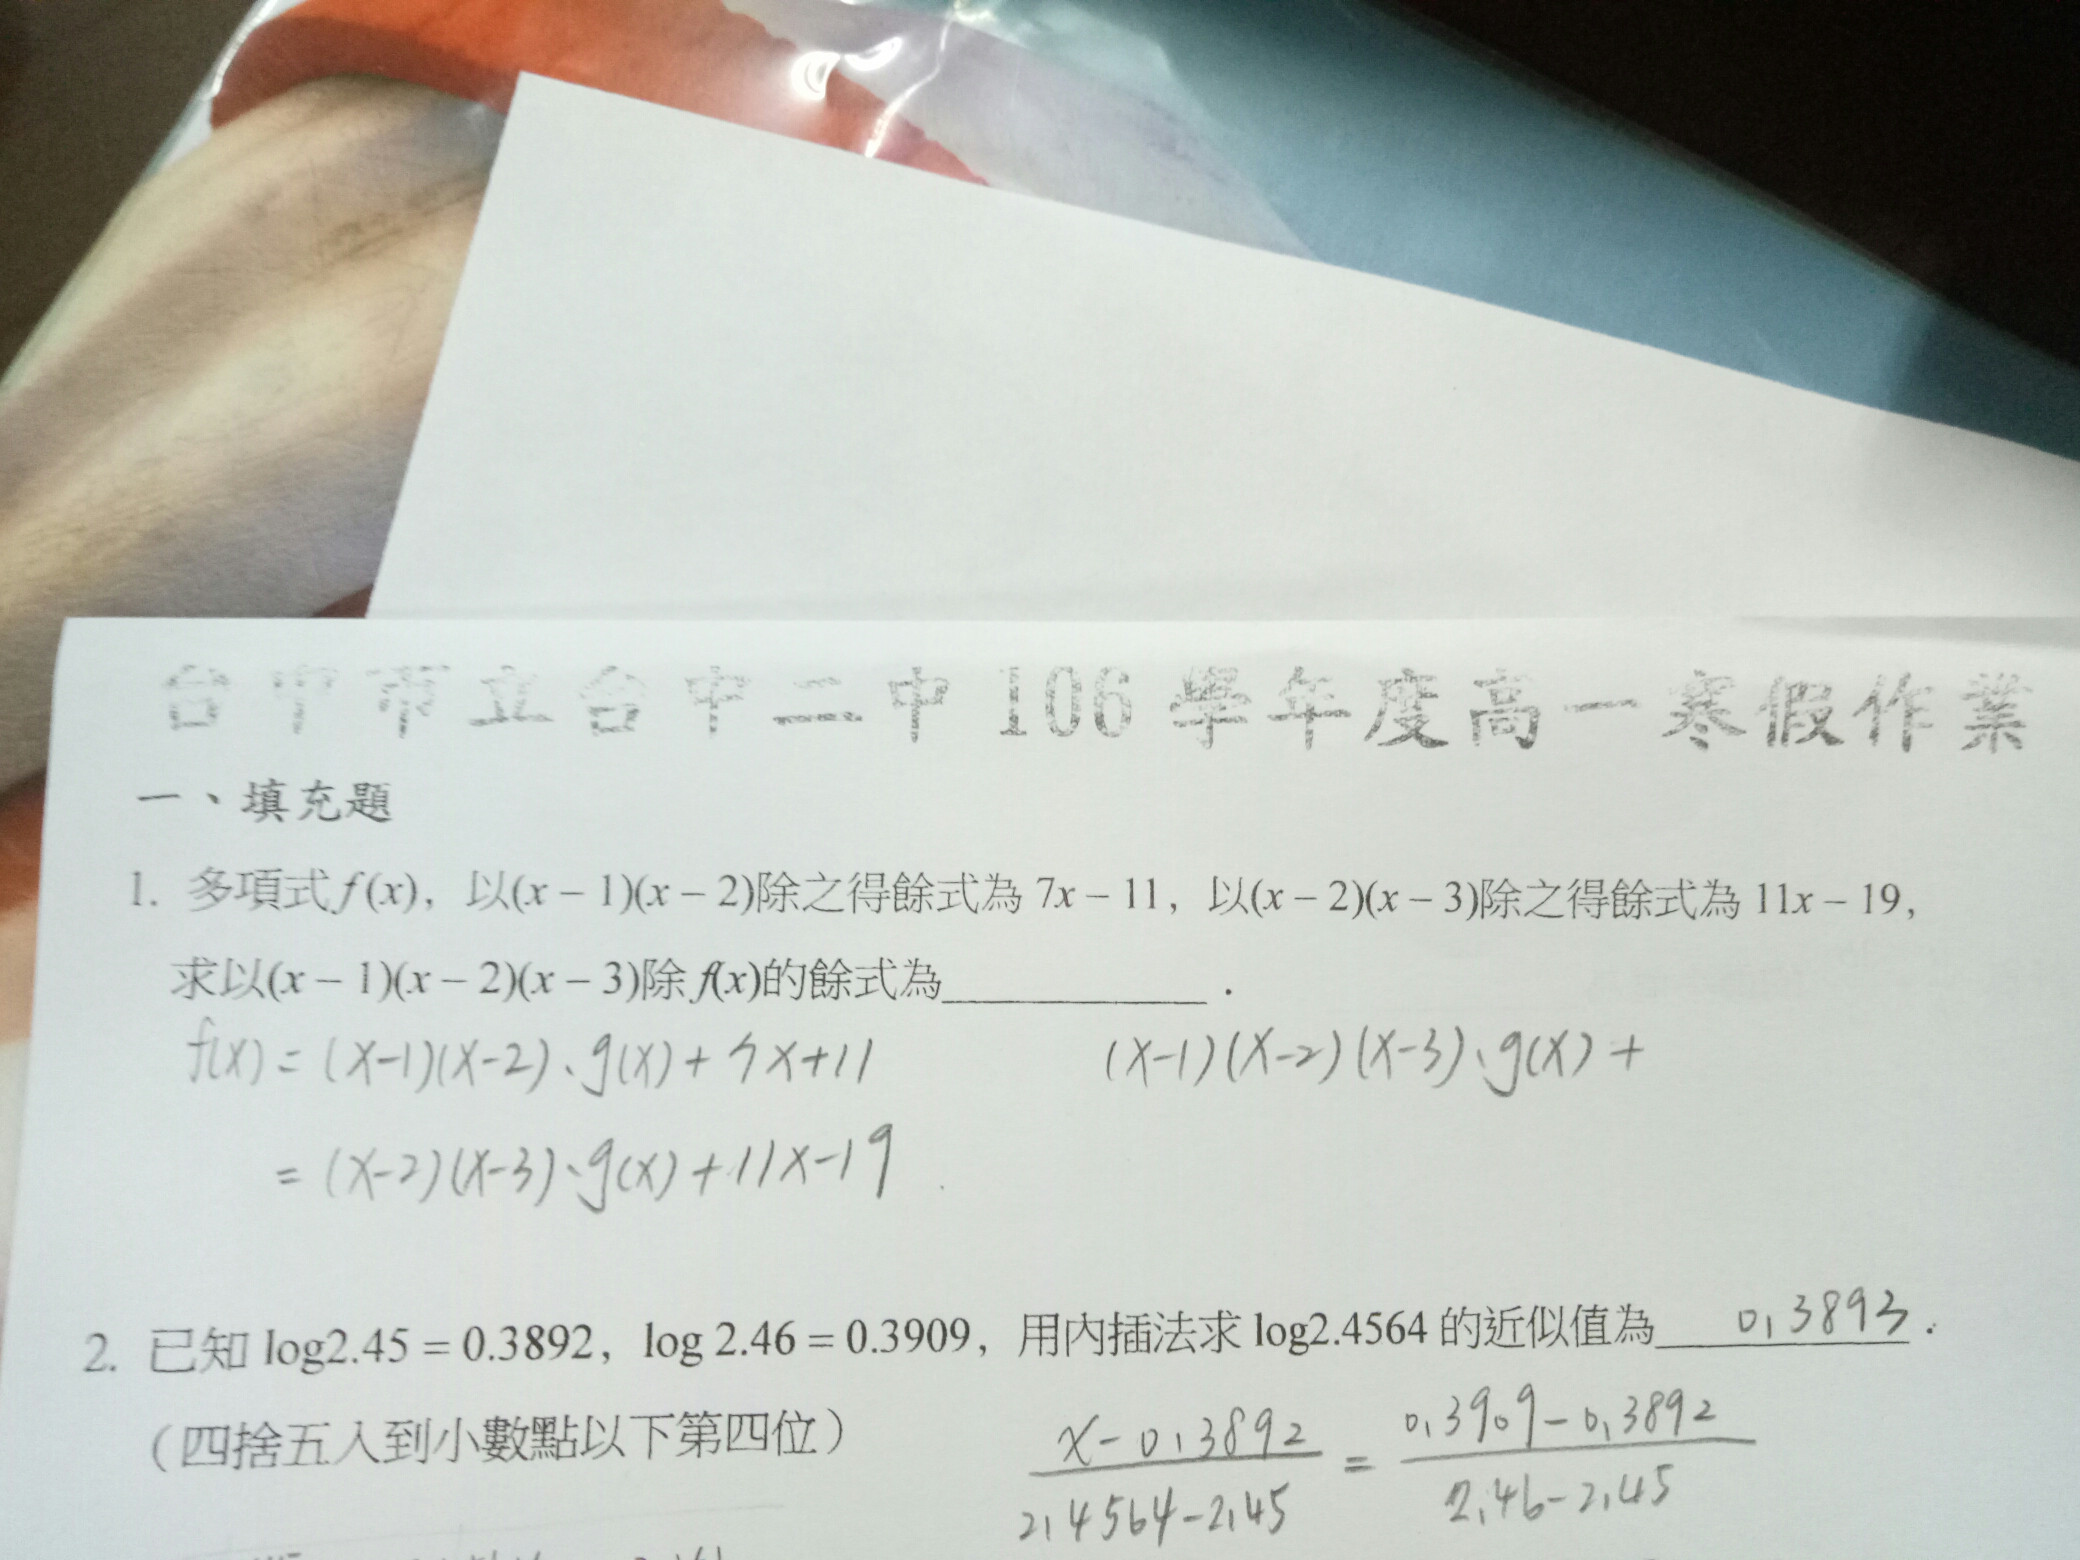 台中市立台中二中106學年度高一寒假作業
一、填充題
1. 多項式f(x)，以(x－1)(x－2)除之得餘式為 7x－11，以(x－2)(x－3)除之得餘式為 11x－19，
求以(x－1)(x－2)(x－3)除f(x)的餘式為____________．
f(x) = (x-1)(x-2)·g(x)+7x+11
(x-1)(x-2)(x-3)·g(x)+
= (x-2)(x-3)·g(x)+11x-19
2. 已知 log2.45 = 0.3892，log 2.46 = 0.3909，用內插法求 log2.4564 的近似值為 0.3893．
（四捨五入到小數點以下第四位）
x-0.3892 / 2.4564-2.45 = 0.3909-0.3892 / 2.46-2.45